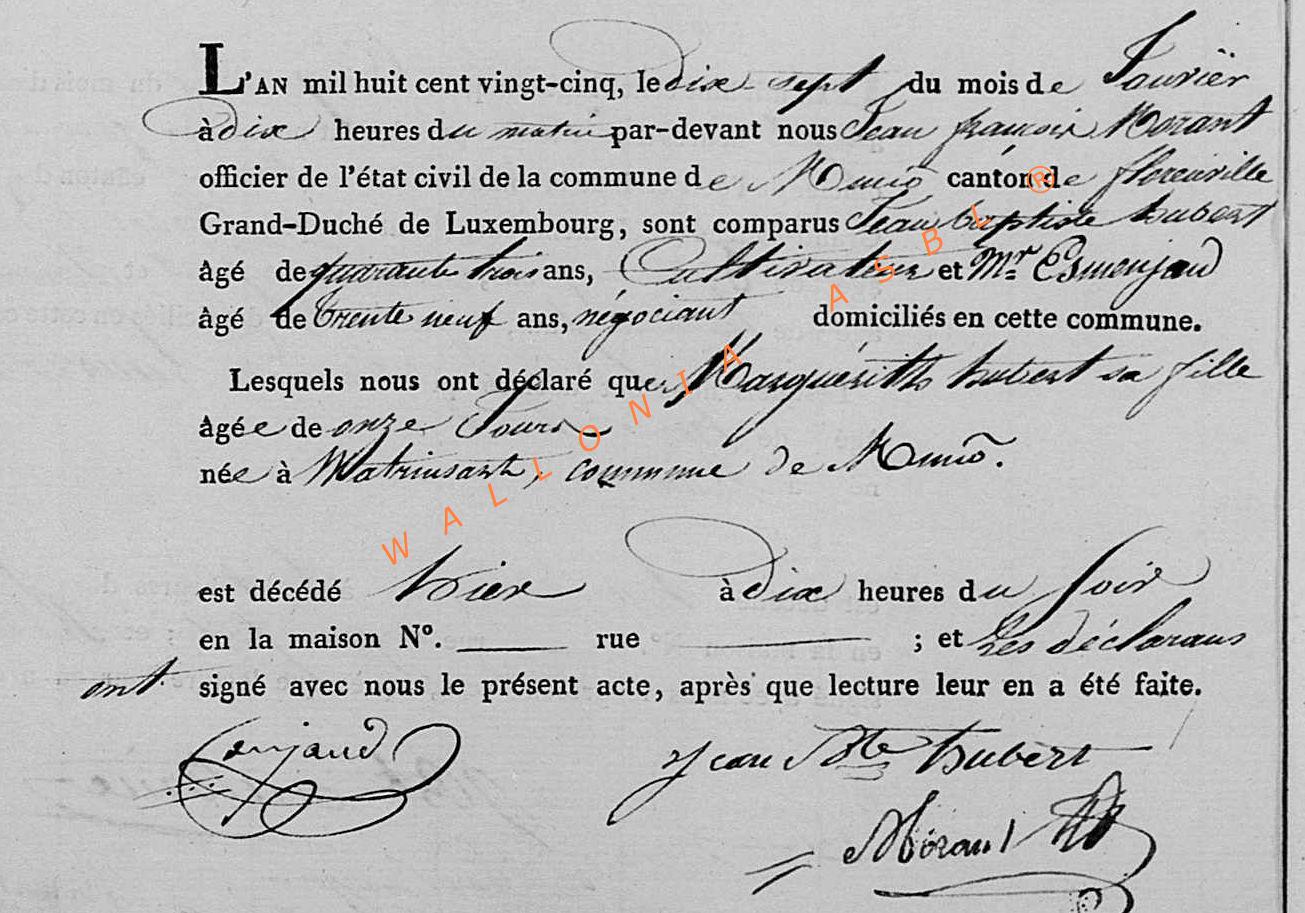 L'AN mil huit cent vingt-cinq, le dix sept du mois de Janviër
à dix heures du matin par-devant nous Jean françois Morant
officier de l'état civil de la commune de Muno canton de florenville
Grand-Duché de Luxembourg, sont comparus Jean baptiste hubert
âgé de quarante trois ans, Cultivateur et Mr. Esmonjaud
âgé de trente neuf ans, négociant domiciliés en cette commune.
Lesquels nous ont déclaré que hubert sa fille
âgée de onze Jours
née à Watrinsart, commune de Muno.
est décédé hier à dix heures du soir
en la maison No. rue ; et les déclarans
ont signé avec nous le présent acte, après que lecture leur en a été faite.
Jean Bte hubert
WALLONIA ASBL ®